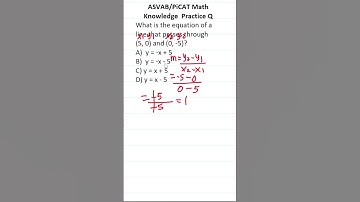 ASVAB/PiCAT Math
Knowledge Practice Q
What is the equation of a
line that passes through
(5, 0) and (0, -5)?
A) y = -x + 5
B) y = -x - 5
C) y = x + 5
D) y = x - 5
x₁ y₁ x₂ y₂
m = y₂-y₁
x₂-x₁
= -5-0
0-5
= -5
-5
= 1